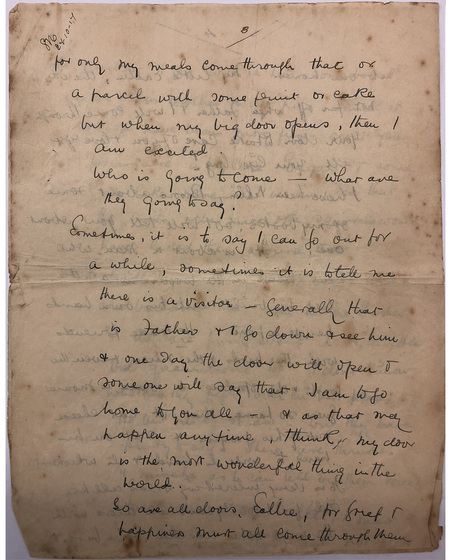 5
for only my meals come through that or
a parcel with some fruit or cake
but when my big door opens, then I
am excited
who is going to come — what are
they going to say?
Sometimes, it is to say I can go out for
a while, sometimes it is to tell me
there is a visitor — generally that
is Father & I go down & see him
& one day the door will open &
someone will say that I am to go
home to you all — & as that may
happen anytime, I think my door
is the most wonderful thing in the
world.
So are all doors, Sallie, for grief &
happiness must all come through them